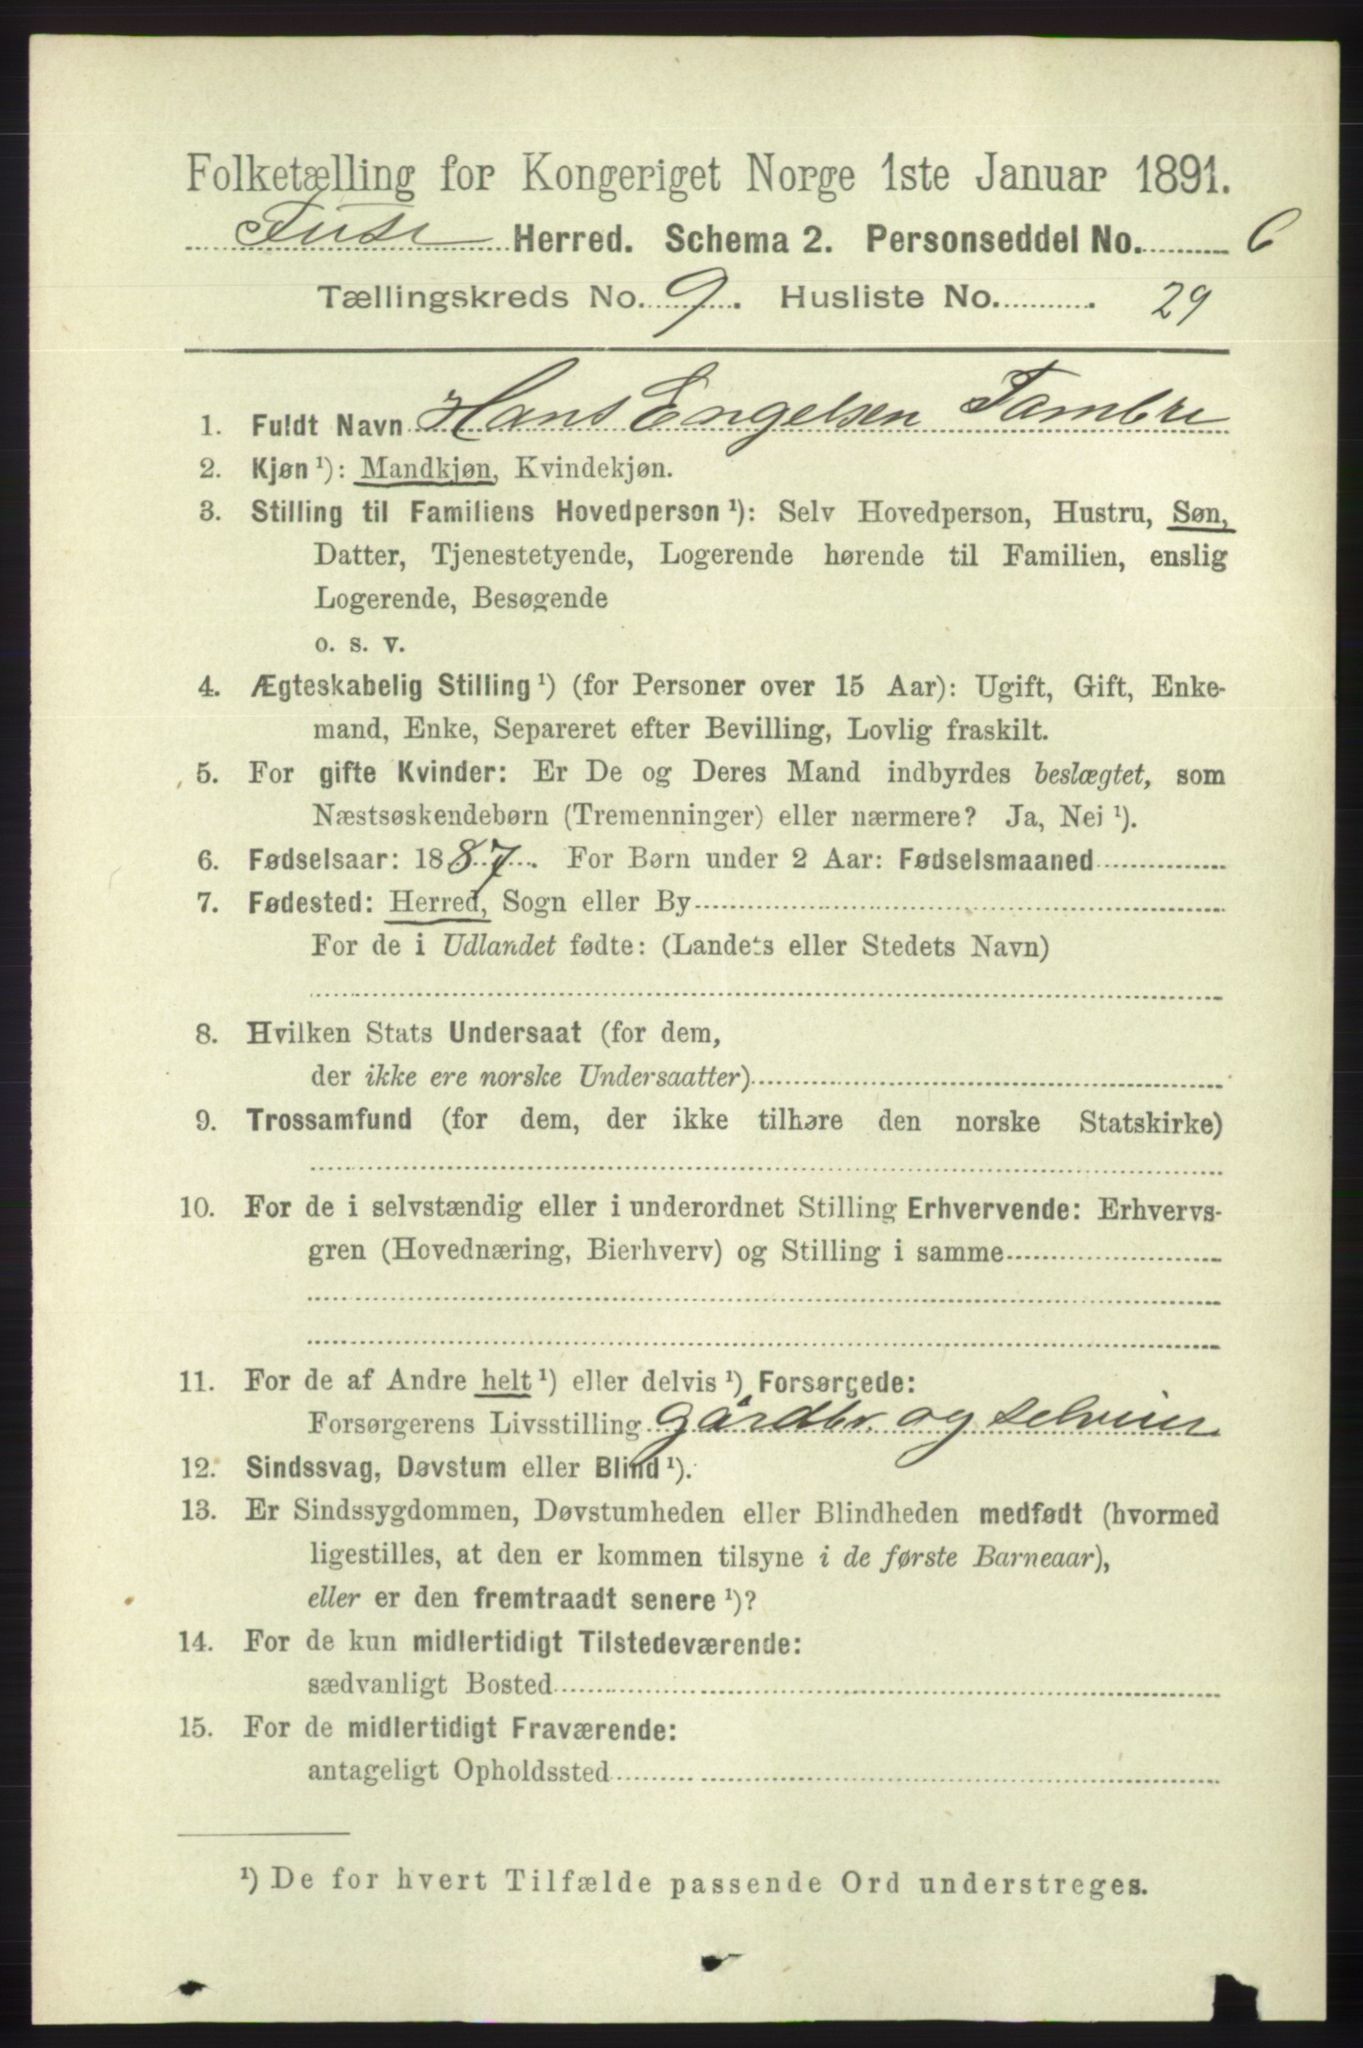 Folketælling for Kongeriget Norge 1ste Januar 1891.
Fuse Herred. Schema 2. Personseddel No. 6
Tællingskreds No. 9. Husliste No. 29
1. Fuldt Navn Hans Engelsen Tombre
2. Kjøn ¹): Mandkjøn, Kvindekjøn.
3. Stilling til Familiens Hovedperson ¹): Selv Hovedperson, Hustru, Søn,
Datter, Tjenestetyende, Logerende hørende til Familien, enslig
Logerende, Besøgende
o. s. v.
4. Ægteskabelig Stilling ¹) (for Personer over 15 Aar): Ugift, Gift, Enke-
mand, Enke, Separeret efter Bevilling, Lovlig fraskilt.
5. For gifte Kvinder: Er De og Deres Mand indbyrdes beslægtet, som
Næstsøskendebørn (Tremenninger) eller nærmere? Ja, Nei ¹).
6. Fødselsaar: 1887. For Børn under 2 Aar: Fødselsmaaned
7. Fødested: Herred, Sogn eller By
For de i Udlandet fødte: (Landets eller Stedets Navn)
8. Hvilken Stats Undersaat (for dem,
der ikke ere norske Undersaatter)
9. Trossamfund (for dem, der ikke tilhøre den norske Statskirke)
10. For de i selvstændig eller i underordnet Stilling Erhvervende: Erhvervs-
gren (Hovednæring, Bierhverv) og Stilling i samme
11. For de af Andre helt ¹) eller delvis ¹) Forsørgede:
Forsørgerens Livsstilling gårdbr. og selveier
12. Sindssvag, Døvstum eller Blind ¹).
13. Er Sindssygdommen, Døvstumheden eller Blindheden medfødt (hvormed
ligestilles, at den er kommen tilsyne i de første Barneaar),
eller er den fremtraadt senere ¹)?
14. For de kun midlertidigt Tilstedeværende:
sædvanligt Bosted
15. For de midlertidigt Fraværende:
antageligt Opholdssted
¹) De for hvert Tilfælde passende Ord understreges.